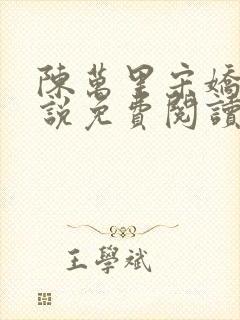 陳萬里宋嬌
說免費閱讀
王學斌